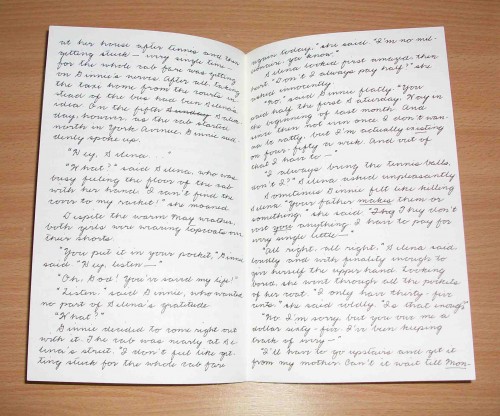 at her house after tennis and then
getting stuck — every single time —
for the whole cab fare was getting
on Ginnie's nerves. After all, taking
the taxi home from the courts in
stead of the bus had been Selena's
idea. On the fifth Sunday Satur-
day, however, as the cab started
north in York Avenue, Ginnie sud-
denly spoke up.
"Hey, Selena..."
"What?" said Selena, who was
busy feeling the floor of the cab
with her hand. "I can't find the
cover to my racket!" she moaned.
Despite the warm May weather,
both girls were wearing topcoats over
their shorts.
"You put it in your pocket," Ginnie
said. "Hey, listen —"
"Oh, God! You've saved my life!"
"Listen," said Ginnie, who wanted
no part of Selena's gratitude.
"What?"
Ginnie decided to come right out
with it. The cab was nearly at Se-
lena's street. "I don't feel like get-
ting stuck for the whole cab fare
again today," she said. "I'm no mil-
lionaire, you know."
Selena looked first amazed, then
hurt. "Don't I always pay half?" she
asked innocently.
"No," said Ginnie flatly. "You
paid half the first Saturday. Way in
the beginning of last month. And
since then not even once. I don't wan-
na be ratty, but I'm actually existing
on four-fifty a week. And out of
that I have to —"
"I always bring the tennis balls,
don't I?" Selena asked unpleasantly.
Sometimes Ginnie felt like killing
Selena. "Your father makes them or
something," she said. "They They don't
cost you anything. I have to pay for
every single little —"
"All right, all right," Selena said,
loudly and with finality enough to
give herself the upper hand. Looking
bored, she went through all the pockets
of her coat. "I only have thirty-five
cents," she said coldly. "Is that enough?"
"No. I'm sorry, but you owe me a
dollar sixty-five. I've been keeping
track of every —"
"I'll have to go upstairs and get it
from my mother. Can't it wait till Mon-